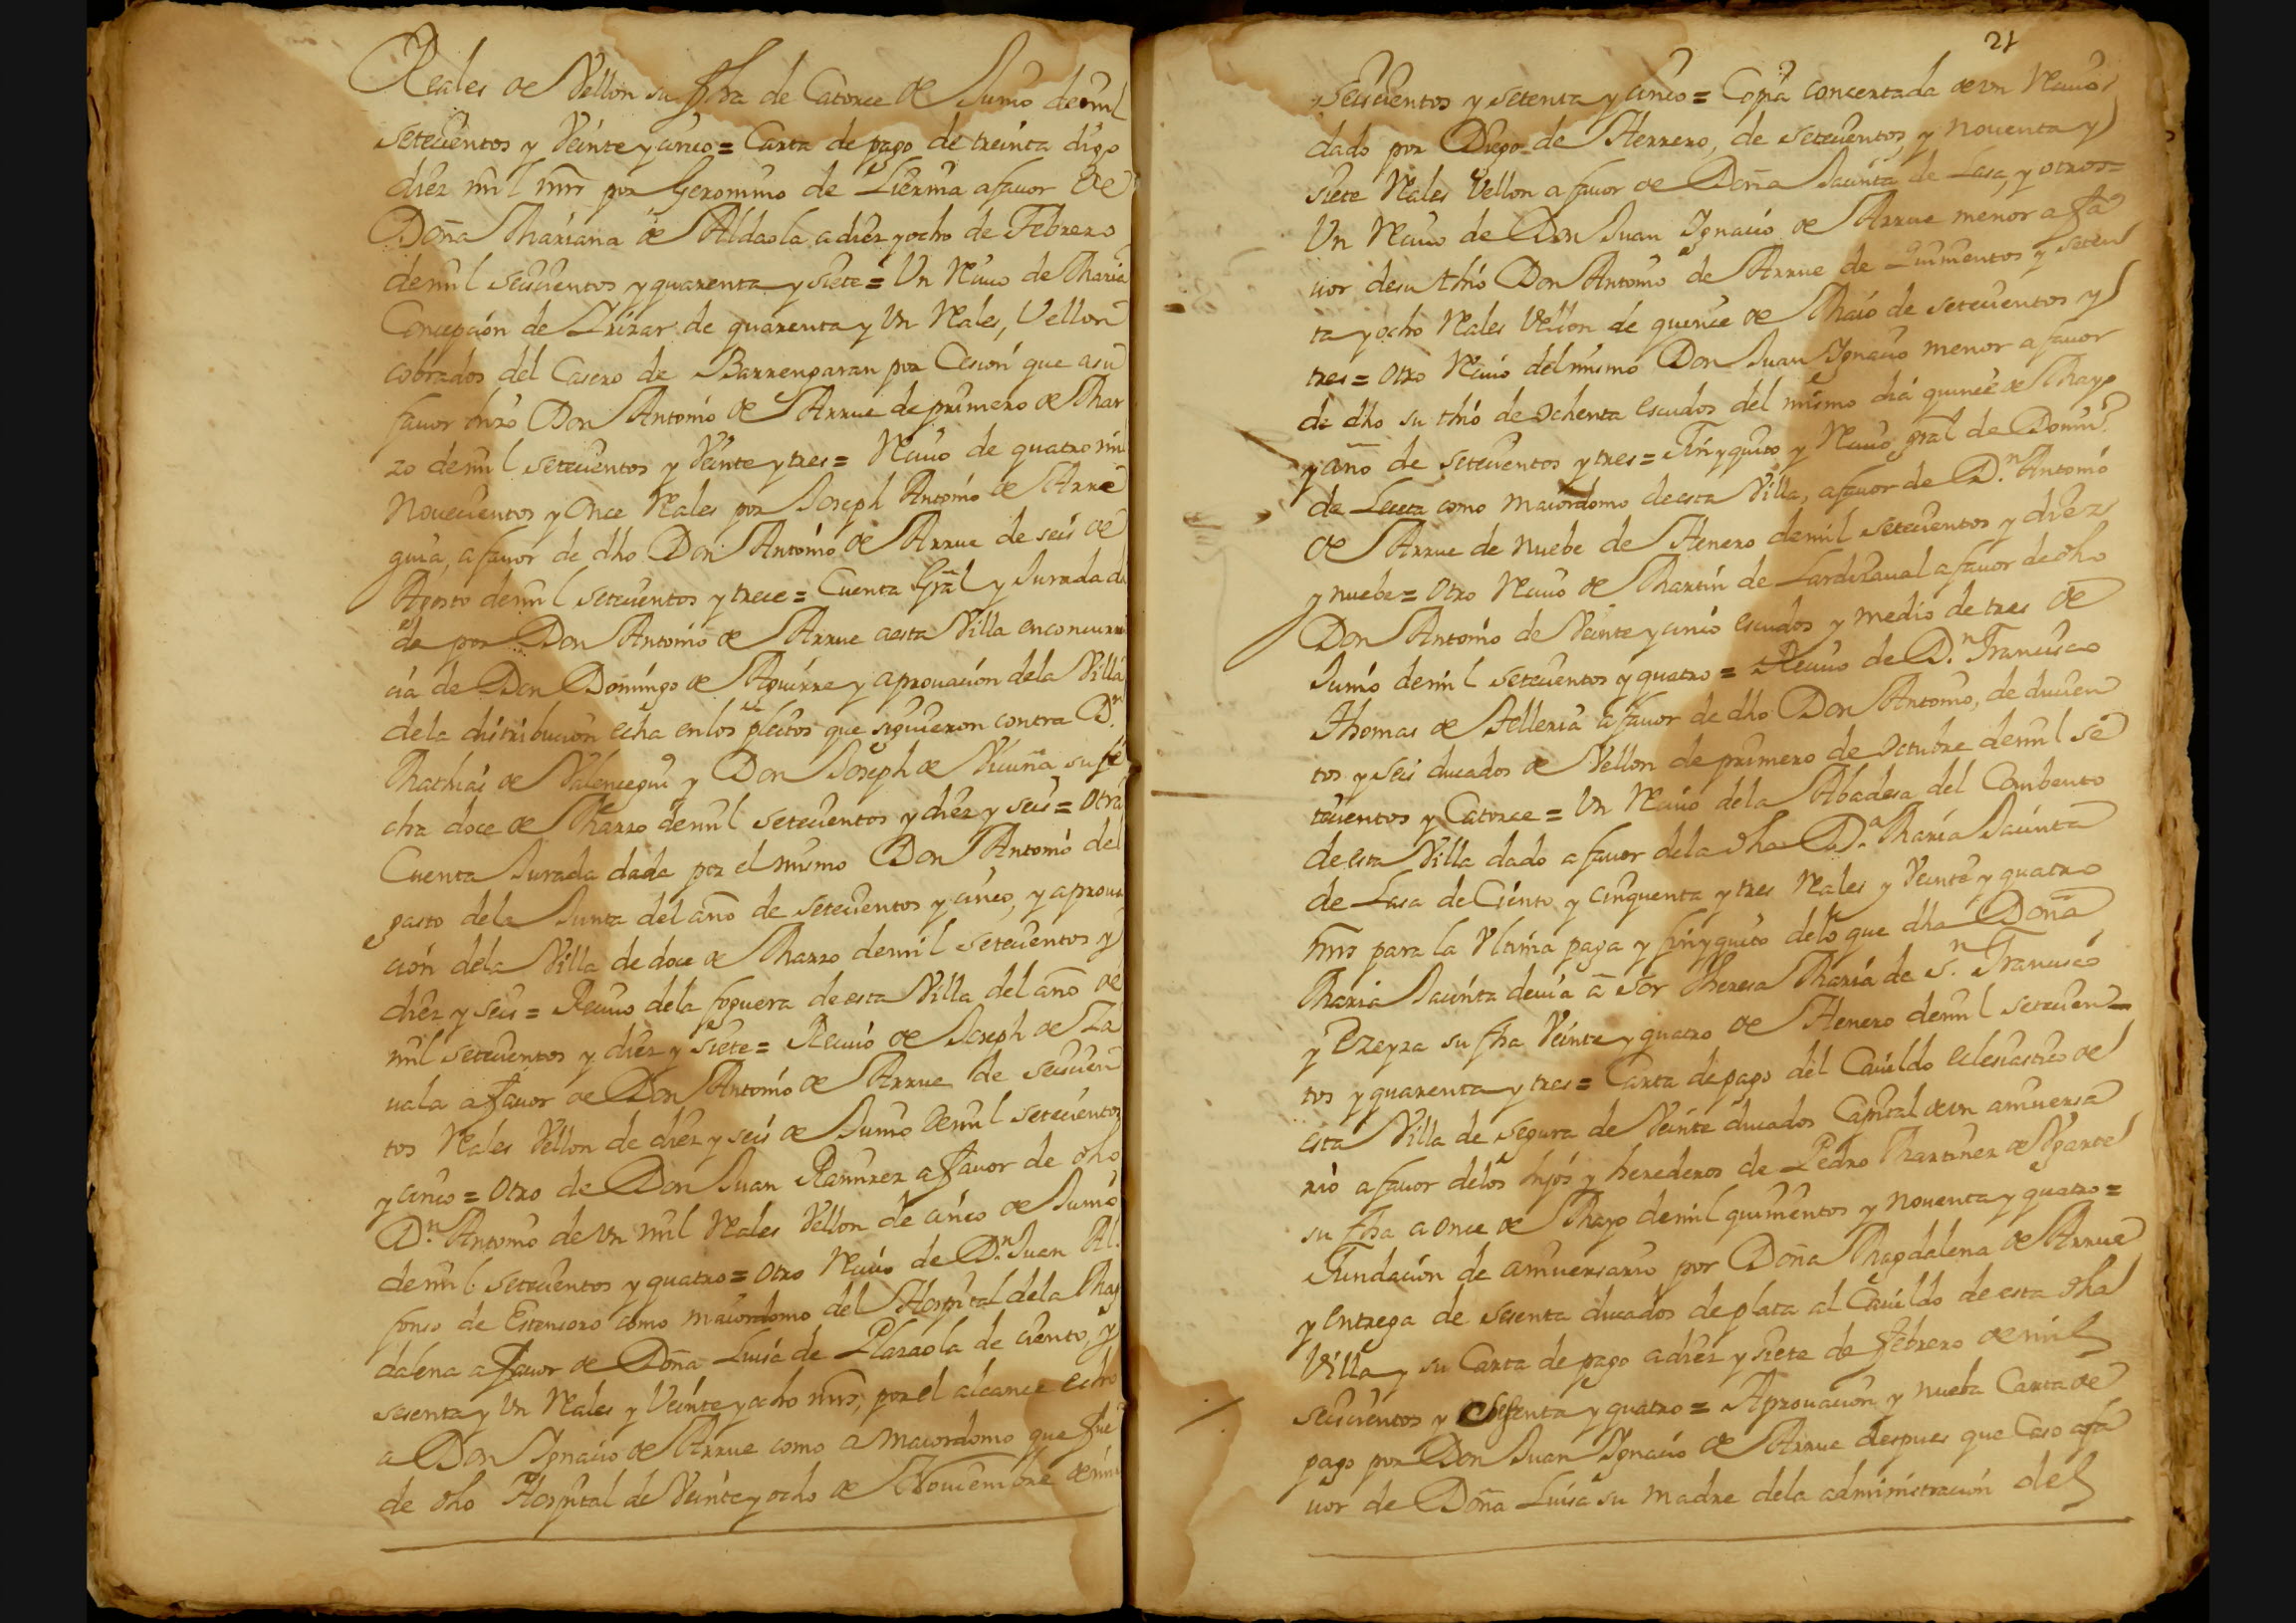 Reales de Vellon su fha de Catorce de Junio de mil
setecientos y Veinte y cinco = Carta de pago de treinta digo
diez mil mrs por Geronimo de Lierma a fauor de
Doña Mariana de Aldaola a diez y ocho de Febrero
de mil seiscientos y quarenta y siete = Un Reciuo de Maria
Concepción de Irizar de quarenta y Un Reales, Vellon
cobrados del Casero de Barrengaran por Cesion que a su
fauor hizo Don Antonio de Arrue de primero de Mar
zo de mil setecientos y Veinte y tres = Reciuo de quatro mil
Nouecientos y Once Reales por Joseph Antonio de
guia, a fauor de dho Don Antonio de Arrue de seis de
Agosto de mil setecientos y trece = Cuenta Gral y Jurada da
da por Don Antonio de Arrue a esta Villa en concurren
cia de Don Domingo de Aguirre y aprouacion de la Villa
de la distribucion echa en los pleitos que siguieron contra D.n
Mathias de Valencegui y Don Joseph de Vicuña su fe
cha doce de Marzo de mil setecientos y diez y seis = Otra
Cuenta Jurada dada por el mismo Don Antonio del
gasto de la Junta del año de setecientos y cinco, y aproua
ción de la Villa de doce de Marzo de mil setecientos y
diez y seis = Reciuo de la foguera de esta Villa del año de
mil setecientos y diez y siete = Reciuo de Joseph de Za
uala a fauor de Don Antonio de Arrue de seiscien
tos Reales Vellon de diez y seis de Junio de mil setecientos
y cinco = Otro de Don Juan Ramirez a fauor de dho
D.n Antonio de Un mil Reales Vellon de cinco de Junio
de mil setecientos y quatro = Otro Reciuo de D.n Juan Al
fonso de Estensoro como maiordomo del Hospital de la Mag
dalena a fauor de Doña Luisa de Olazaola de ciento, y
sesenta y Un Reales y Veinte y ocho mrs, por el alcance echo
a Don Ignacio de Arrue como a maiordomo que fue
de dho Hospital de Veinte y ocho de Nouiembre de mil
21
seiscientos y setenta y cinco = Copia concertada de un Reciuo
dado por Diego de Herrero, de setecientos, y nouenta y
siete Reales Vellon a fauor de Doña Jacinta de Lasa, y otros =
Un Reciuo de Don Juan Ignacio de Arrue menor a fa
uor de su thio Don Antonio de Arrue de Quinientos y seten
ta y ocho Reales Vellon de quince de Maio de setecientos y
tres = Otro Reciuo del mismo Don Juan Ignacio menor a fauor
de dho su thio de ochenta escudos del mismo dia quince de Mayo
y año de setecientos y tres = Finyquito y Reciuo gral de Domin.o
de Leceta como maiordomo de esta Villa, a fauor de D.n Antonio
de Arrue de nuebe de Henero de mil setecientos y diez
y nuebe = Otro Reciuo de Martin de Lardizaual a fauor de dho
Don Antonio de Veinte y cinco escudos y medio de tres de
Junio de mil setecientos y quatro = Reciuo de D.n Francisco
Thomas de Telleria a fauor de dho Don Antonio, de ducien
tos y seis ducados de Vellon de primero de Octubre de mil se
tecientos y Catorce = Un Reciuo de la Abadesa del Combento
de esta Villa dado a fauor de la dha D.a Maria Jacinta
de Lasa de Ciento y cinquenta y tres Reales y Veinte y quatro
mrs para la Vltima paga y finyquito de lo que dha Doña
Maria Jacinta deuia a Sor Theresa Maria de S.n Francisco
y Ezeyza su fha Veinte y quatro de Henero de mil setecien=
tos y quarenta y tres = Carta de pago del Cauildo eclesiastico de
esta Villa de Segura de Veinte ducados Capital de un aniuersa
rio a fauor de los hijos y herederos de Pedro Martinez de Ygarte
su fha a once de Mayo de mil quinientos y nouenta y quatro =
Fundacion de aniuersario por Doña Magdalena de Arrue
y entrega de sesenta ducados de plata al Cauildo de esta dha
Villa y su Carta de pago a diez y siete de febrero de mil
seiscientos y y quatro = Aprouacion y nueba Carta de
pago por Don Juan Ignacio de Arrue despues que Caso a fa
uor de Doña Luisa su madre de la administracion del